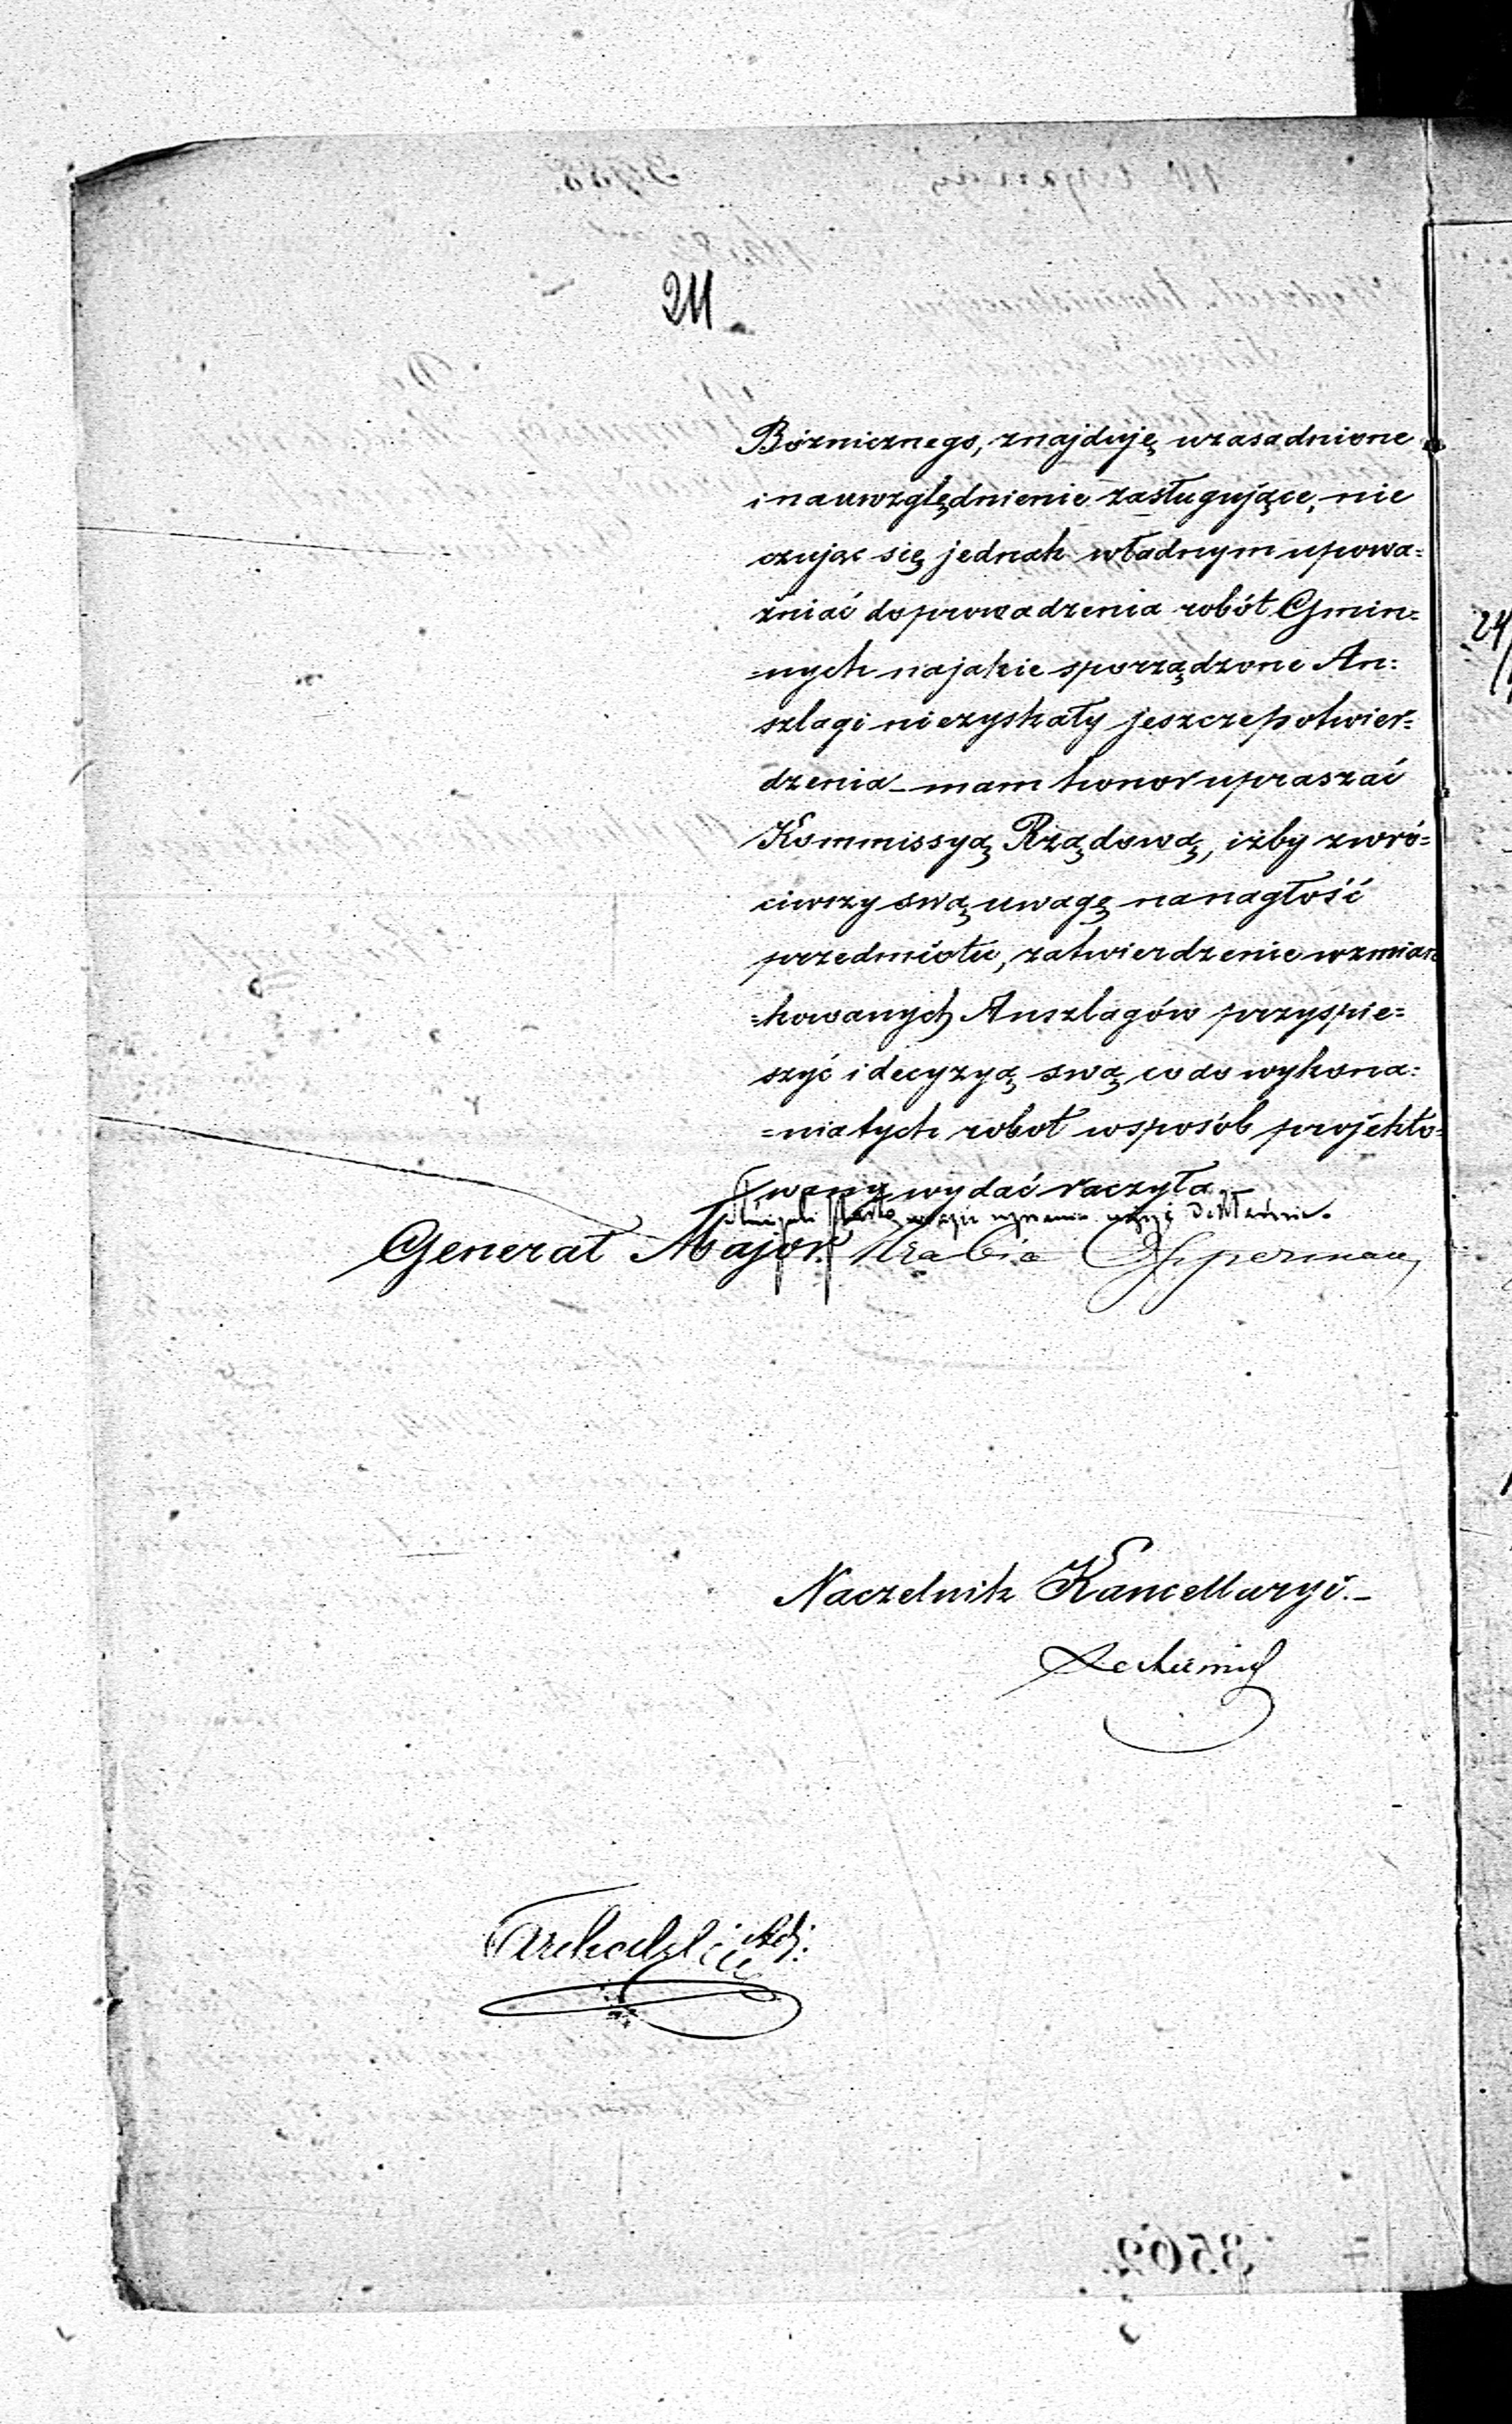 211
Bóżnicznego, znajduję uzasadnione
i na uwzględnienie zasługujące, nie
czując się jednak władnym upowa=
żniać do prowadzenia robót Gmin=
=nych na jakie sporządzone An=
szlagi nie zyskały jeszcze potwier=
dzenia – mam honor upraszać
Kommissyą Rządową, iżby zwró=
ciwszy swą uwagę na nagłość
przedmiotu, zatwierdzenie wzmian
=kowanych Anszlagów przyspie=
szyć i decyzyą swą co do wykona=
=nia tych robot w sposób projekto=
wany wydać raczyła.
Generał Major Hrabia Opperman
Naczelnik Kancellaryi. –
3562